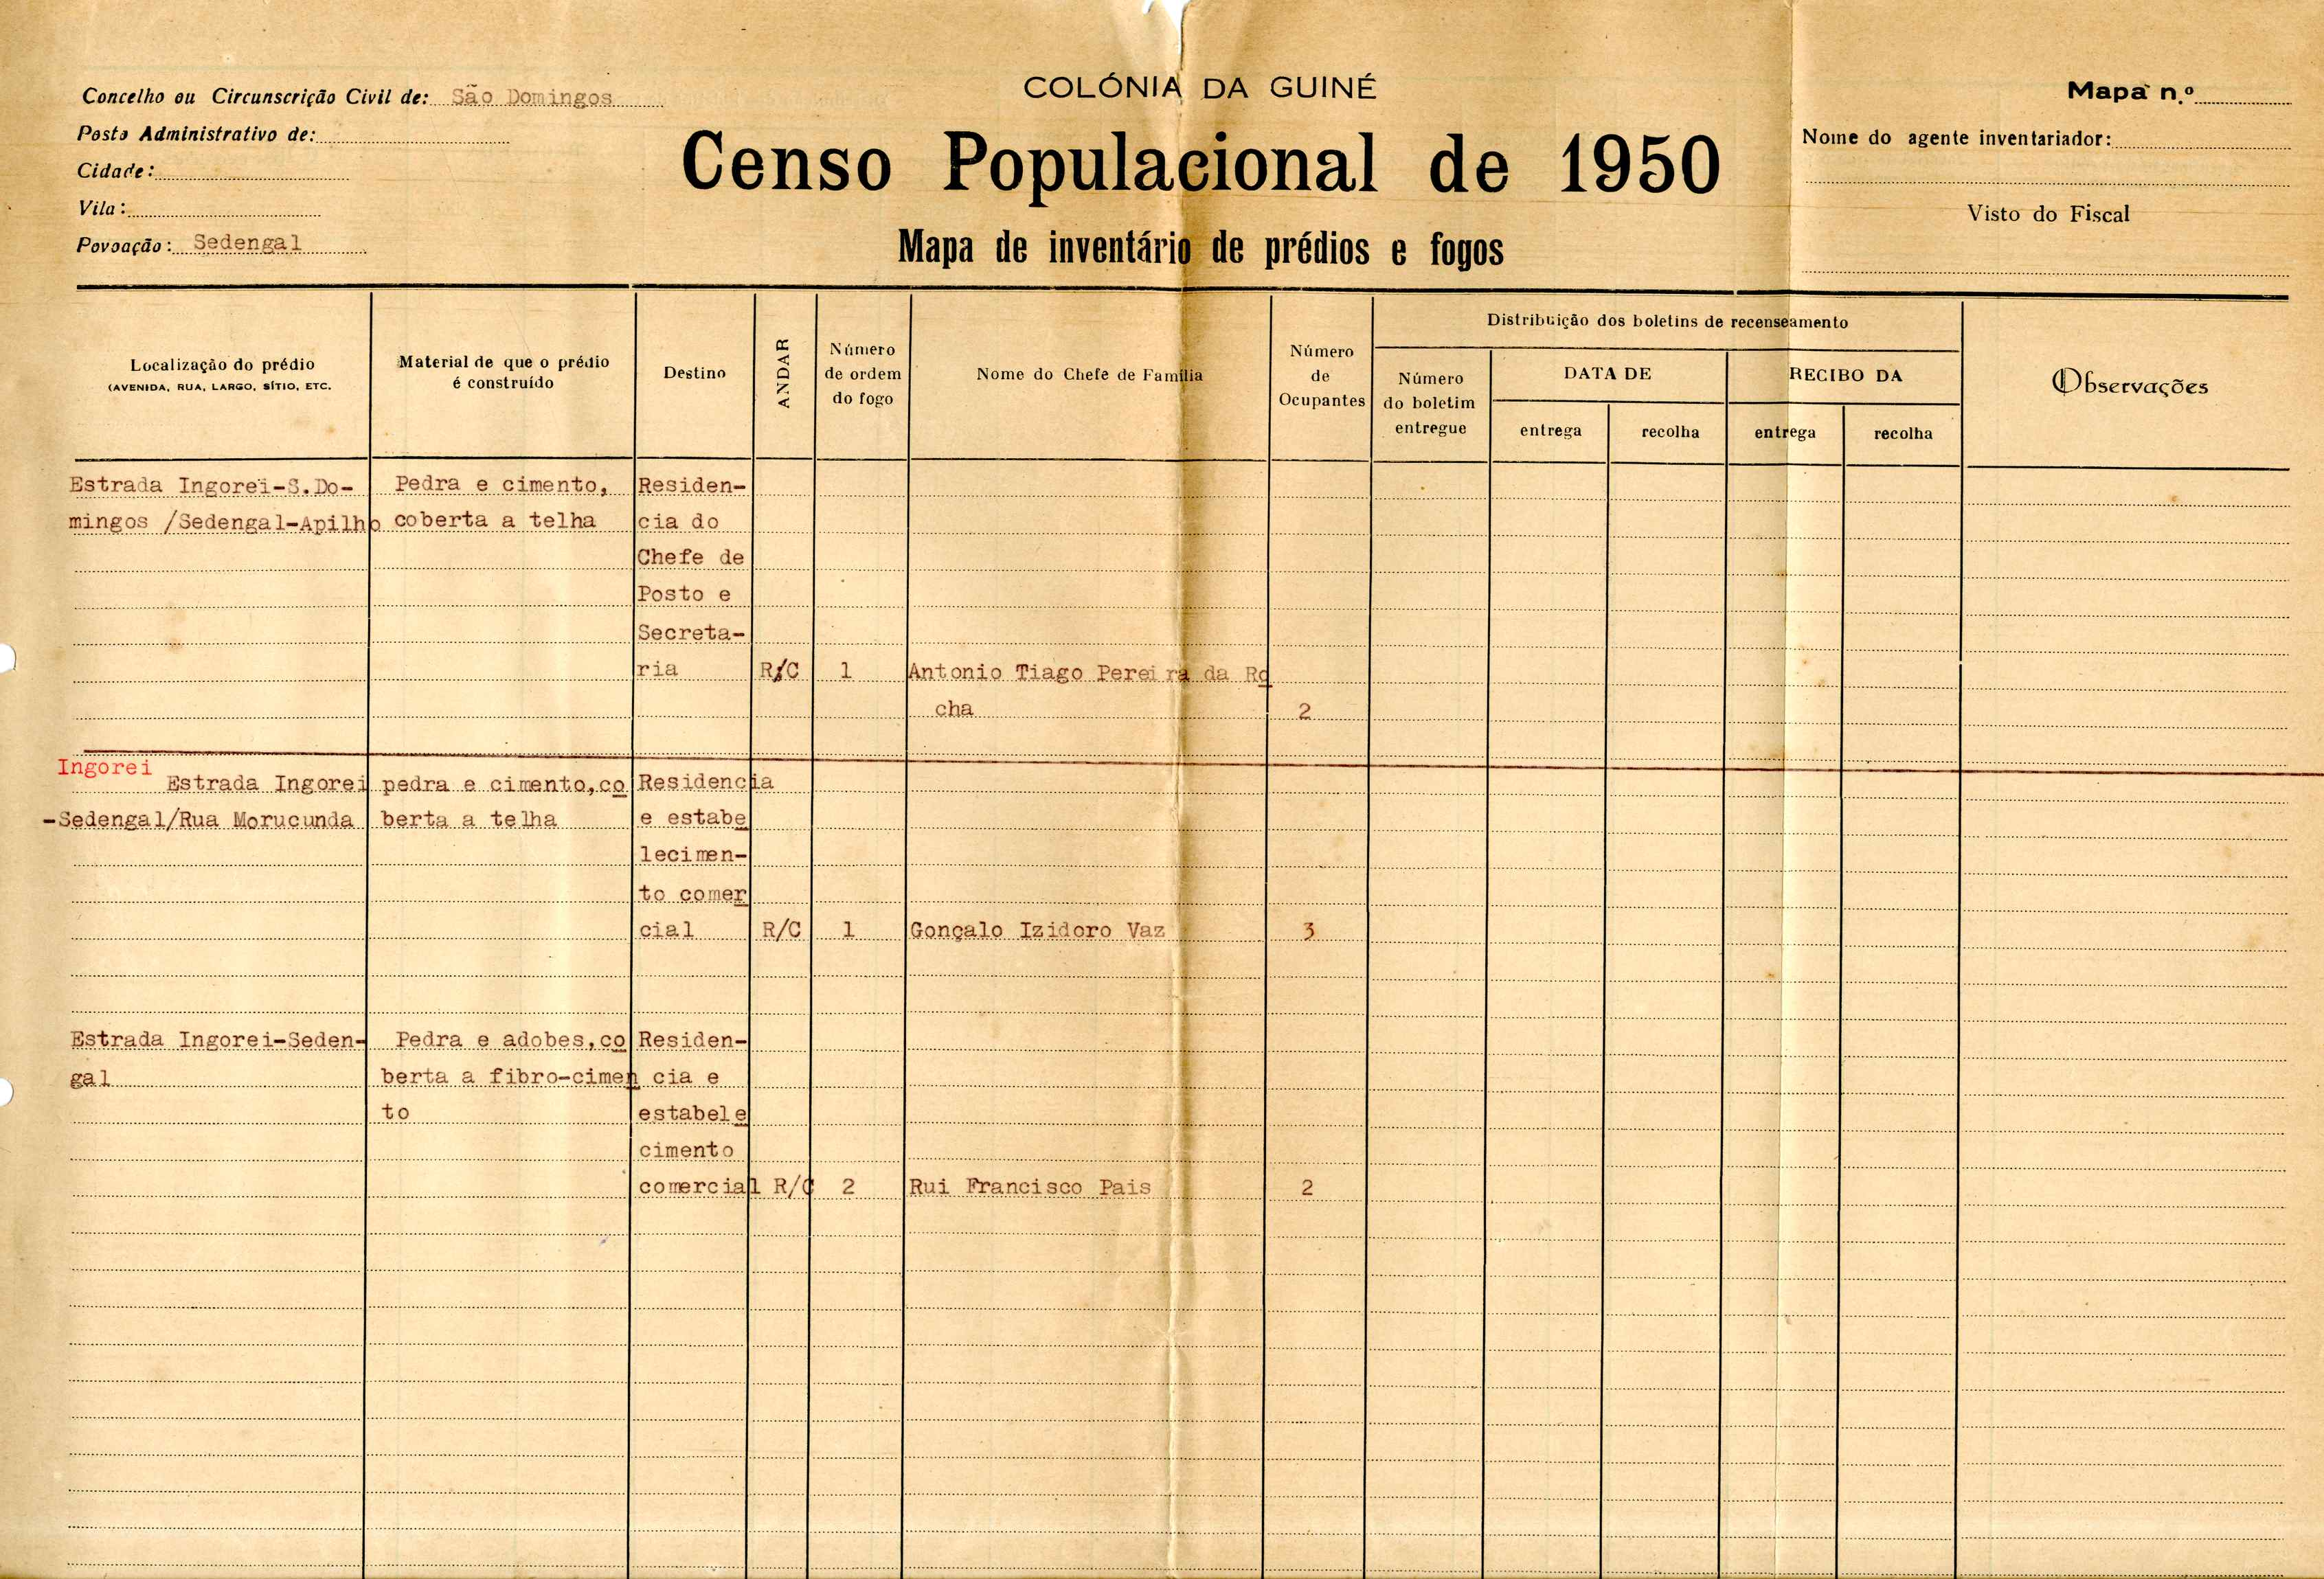 Concelho ou Circunscrição Civil de: São Domingos
Posto Administrativo de:
Cidade:
Vila:
Povoação: Sedengal
COLÓNIA DA GUINÉ
Censo Populacional de 1950
Mapa de inventário de prédios e fogos
Mapa n.º
Nome do agente inventariador:
Visto do Fiscal
Localização do prédio
(AVENIDA, RUA, LARGO, SÍTIO, ETC.
Material de que o prédio
é construído
Destino
ANDAR
Número
de ordem
do fogo
Nome do Chefe de Família
Número
de
Ocupantes
Distribuição dos boletins de recenseamento
Número
do boletim
entregue
DATA DE
entrega recolha
RECIBO DA
entrega recolha
Observações
Estrada Ingorei-S.Do- Pedra e cimento, Residen-
mingos /Sedengal-Apilho coberta a telha cia do
Chefe de
Posto e
Secreta-
ria R/C 1 Antonio Tiago Pereira da Ro
cha 2
Ingorei
Estrada Ingorei pedra e cimento,co Residencia
-Sedengal/Rua Morucunda berta a telha e estabe
lecimen-
to comer
cial R/C 1 Gonçalo Izidoro Vaz 3
Estrada Ingorei-Seden- Pedra e adobes,co Residen-
gal berta a fibro-cimen cia e
to estabele
cimento
comercial R/C 2 Rui Francisco Pais 2